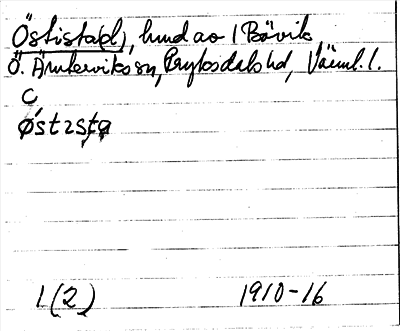 Östista(d), hmd ao 1 Bävik
Ö. Ämterviks sn, Fryksdals hd, Värml. l.
C
østzsta
1(2) 1910-16